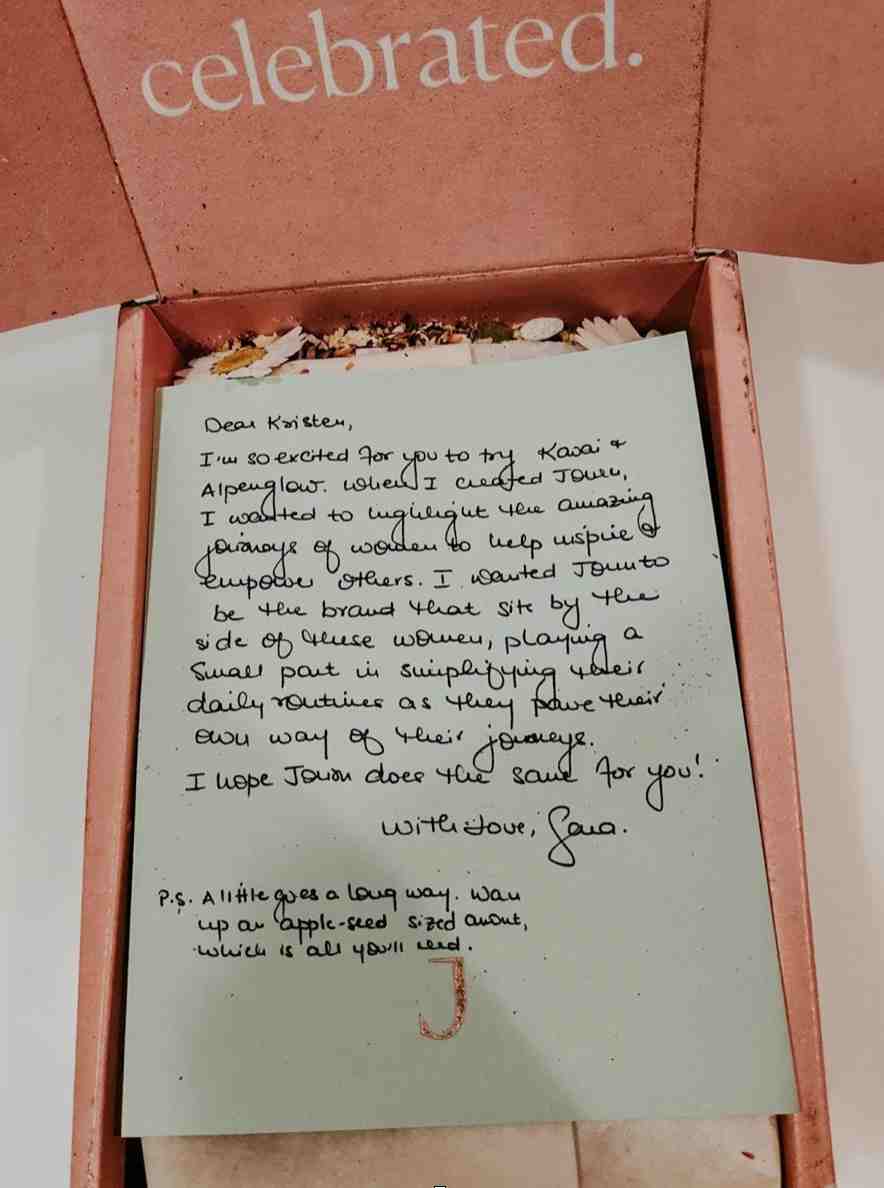 celebrated.
Dear Kristen,
I'm so excited for you to try Kavai &
Alpenglow. When I created Journ,
I wanted to highlight the amazing
journeys of women to help inspire &
empower others. I wanted Journ to
be the brand that sits by the
side of these women, playing a
small part in simplifying their
daily routines as they pave their
own way of their journeys.
I hope Journ does the same for you!
With love, Sara.
P.S. A little goes a long way. Warm
up an apple-seed sized amount,
which is all you'll need.
J